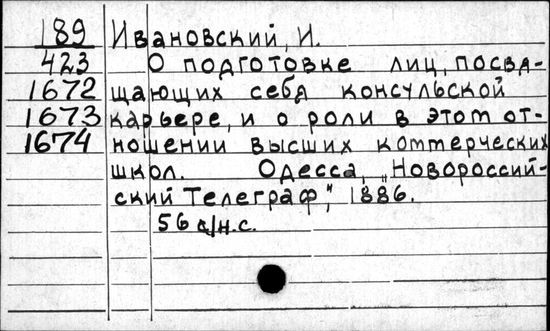 189 Ивановский, И.
423 О подготовке лиц, посвя-
1672 щающих себя консульской
1673 карьере, и о роли в этом от-
1674 ношении высших коммерческих
школ. Одесса, „Новороссий-
ский Телеграф", 1886.
56 с/н.с.